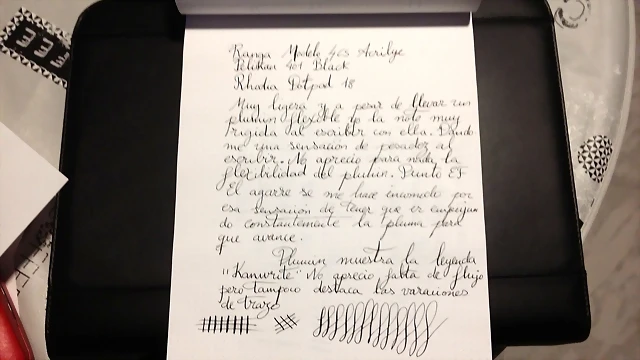 Ranga Modelo 4CS Acrilyc
Pelikan 401 Black
Rhodia Dotpad 18
Muy ligera y a pesar de llevar un
plumin flexible yo la noto muy
rigida al escribir con ella. Dando
me una sensación de pesadez al
escribir. No aprecio para nada la
flexibilidad del plumin. Punto EF
El agarre se me hace incomodo por
esa sensación de tener que ir empujan
do constantemente la pluma para
que avance.
Plumin muestra la leyenda
"Kanwrite" No aprecio falta de flujo
pero tampoco destaca las variaciones
de trazo
333